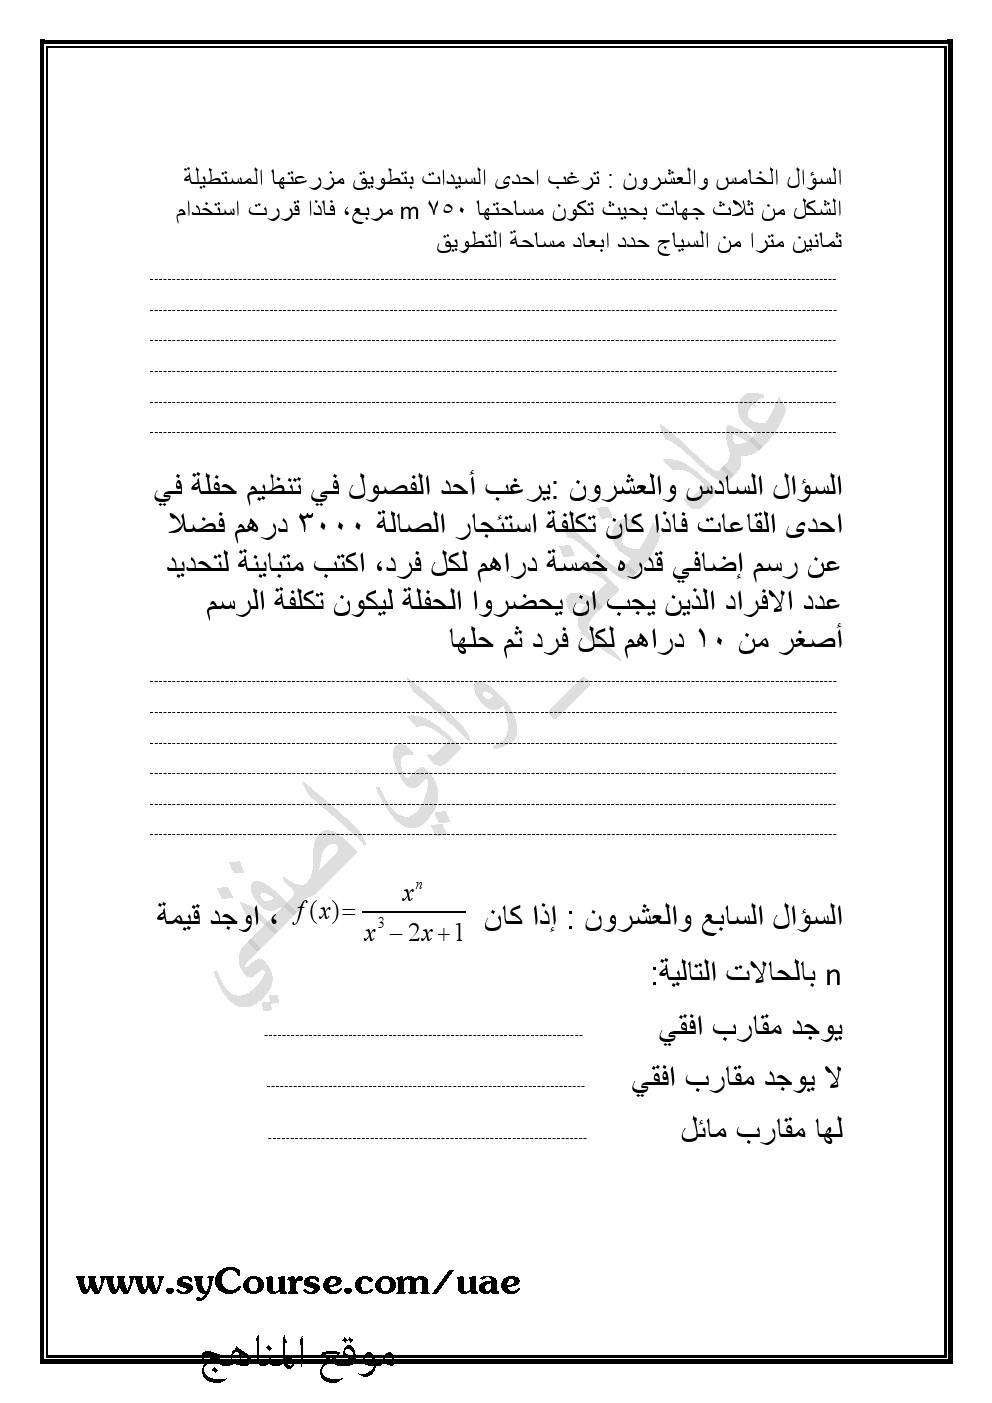 السؤال الخامس والعشرون : ترغب احدى السيدات بتطويق مزرعتها المستطيلة
الشكل من ثلاث جهات بحيث تكون مساحتها ٧٥٠ m مربع، فاذا قررت استخدام
ثمانين مترا من السياج حدد ابعاد مساحة التطويق
السؤال السادس والعشرون :يرغب أحد الفصول في تنظيم حفلة في
احدى القاعات فاذا كان تكلفة استئجار الصالة ٣٠٠٠ درهم فضلا
عن رسم إضافي قدره خمسة دراهم لكل فرد، اكتب متباينة لتحديد
عدد الافراد الذين يجب ان يحضروا الحفلة ليكون تكلفة الرسم
أصغر من ١٠ دراهم لكل فرد ثم حلها
السؤال السابع والعشرون : إذا كان f(x)= x^n / (x^3 – 2x+1) ، اوجد قيمة
n بالحالات التالية:
يوجد مقارب افقي
لا يوجد مقارب افقي
لها مقارب مائل
عماد غانم _ وادي اصفني
www.syCourse.com/uae
موقع المناهج